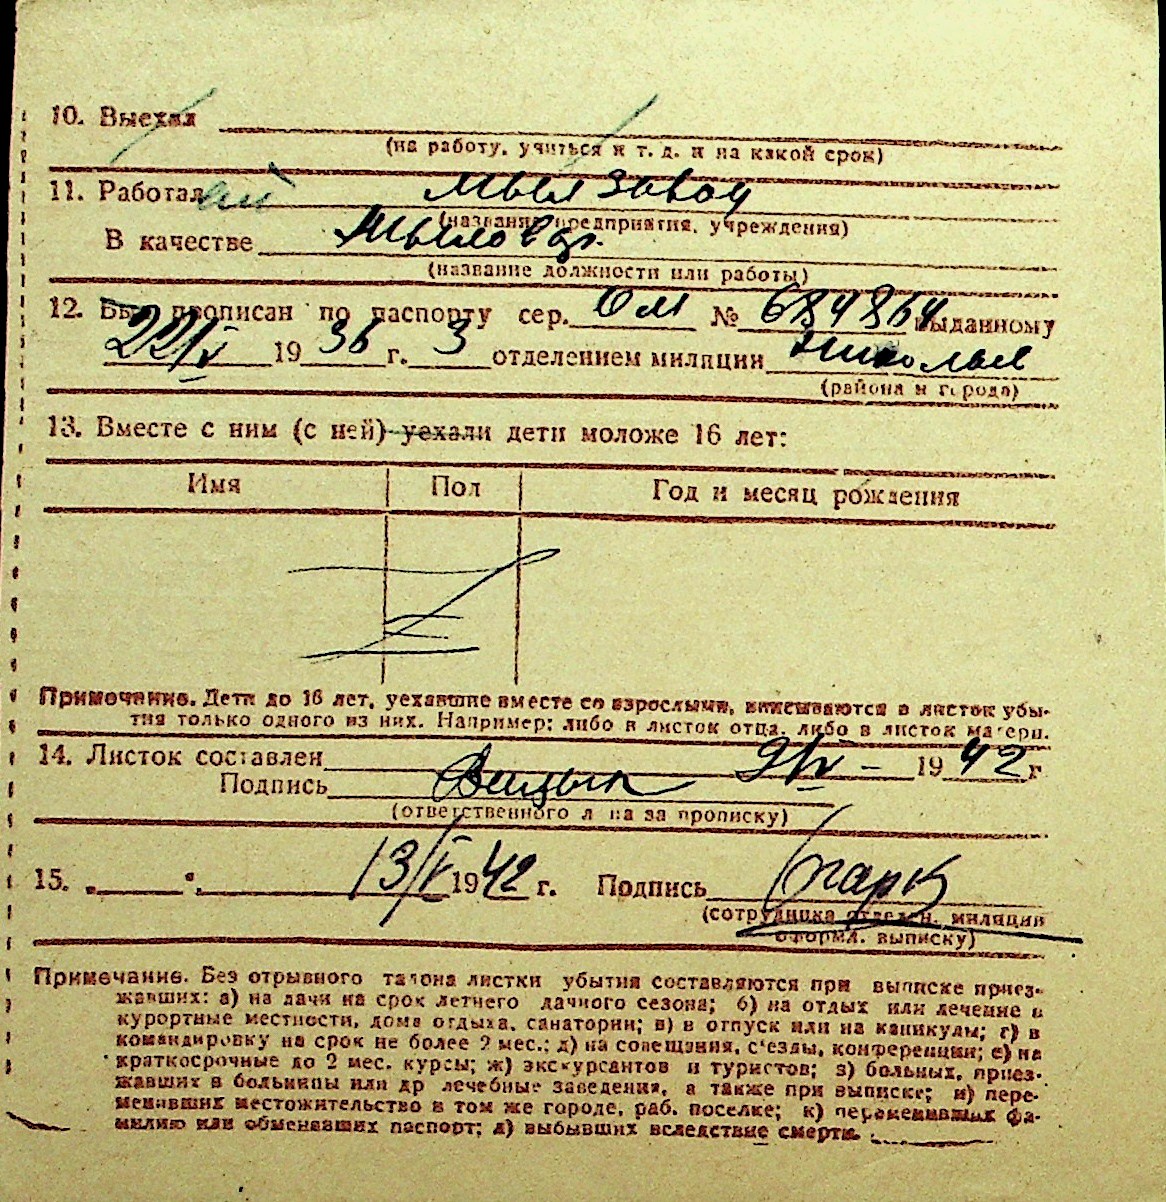 10. Выехал
(на работу, учиться и т. д. и на какой срок)
11. Работал мыл завод
(название предприятия, учреждения)
В качестве Мыловар.
(название должности или работы)
12. Был прописан по паспорту сер. ОМ № 684864 выданному
22/V 1936 г. 3 отделением милиции Николаев
(района и города)
13. Вместе с ним (с ней) уехали дети моложе 16 лет:
Имя Пол Год и месяц рождения
Примечание. Дети до 16 лет, уехавшие вместе со взрослыми, вписываются в листок убы-
тия только одного из них. Например: либо в листок отца, либо в листок матери.
14. Листок составлен 9/IV – 1942 г
Подпись
(ответственного лица за прописку)
15. „ “ 13/V 1942 г. Подпись
(сотрудника отделен. милиции
оформл. выписку)
Примечание. Без отрывного талона листки убытия составляются при выписке приез-
жавших: а) на дачи на срок летнего дачного сезона; б) на отдых или лечение в
курортные местности, дома отдыха, санатории; в) в отпуск или на каникулы; г) в
командировку на срок не более 2 мес.; д) на совещания, с'езды, конференции; е) на
краткосрочные до 2 мес. курсы; ж) экскурсантов и туристов; з) больных, приез-
жавших в больницы или др лечебные заведения, а также при выписке; и) пере-
менивших местожительство в том же городе, раб. поселке; к) переменивших фа-
милию или обменявших паспорт; л) выбывших вследствие смерти.